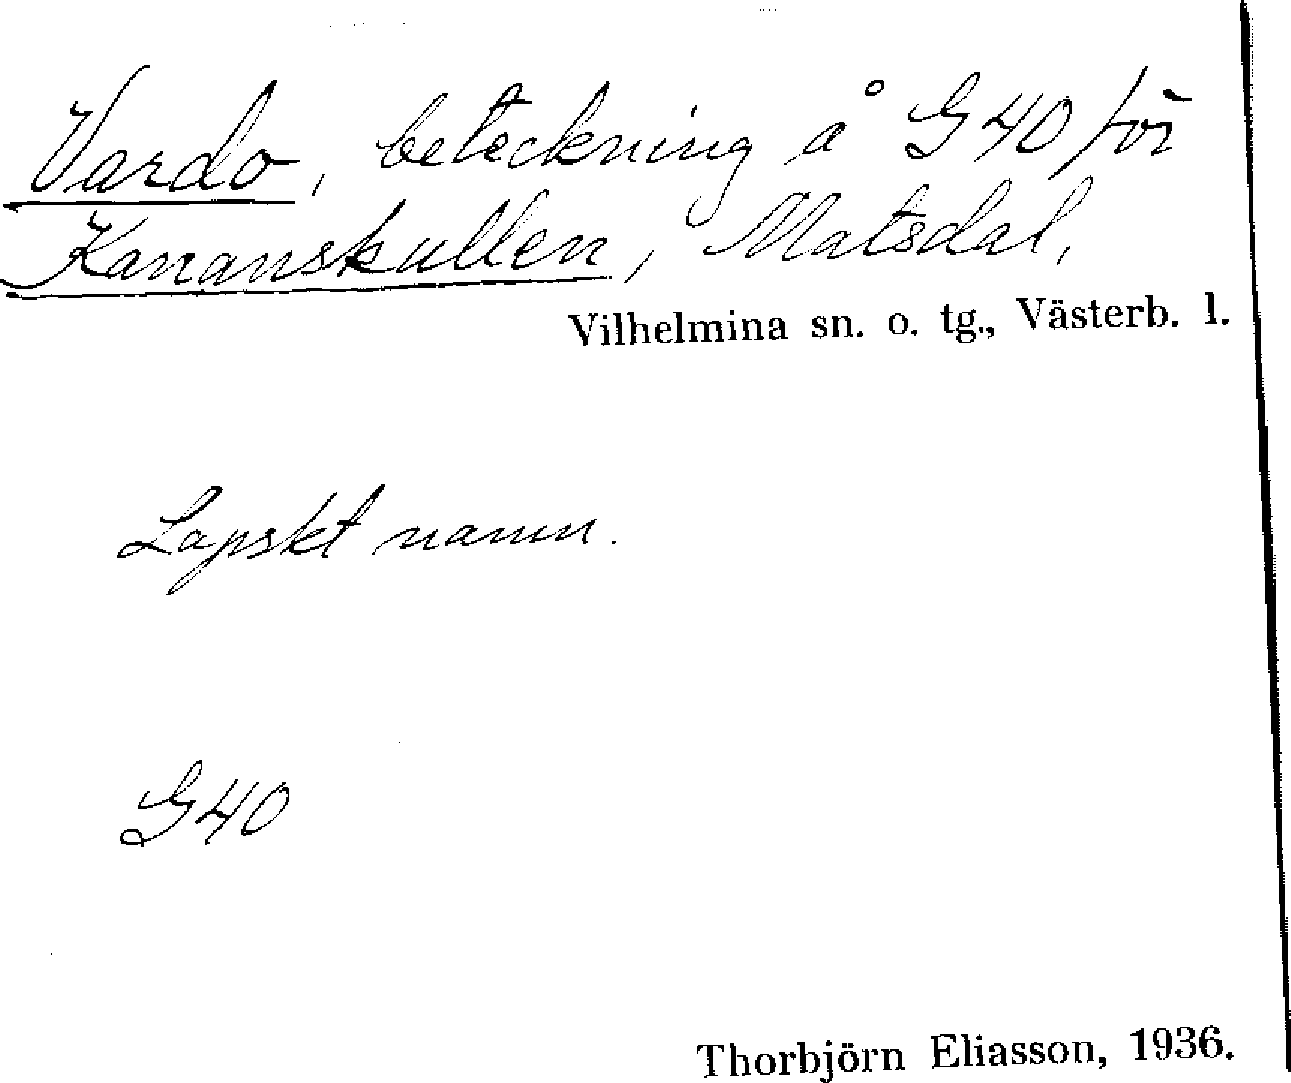 Vardo, beteckning å G40 för
Kananskullen, Matsdal,
Vilhelmina sn. o. tg., Västerb. l.
Lapskt namn.
G40
Thorbjörn Eliasson, 1936.